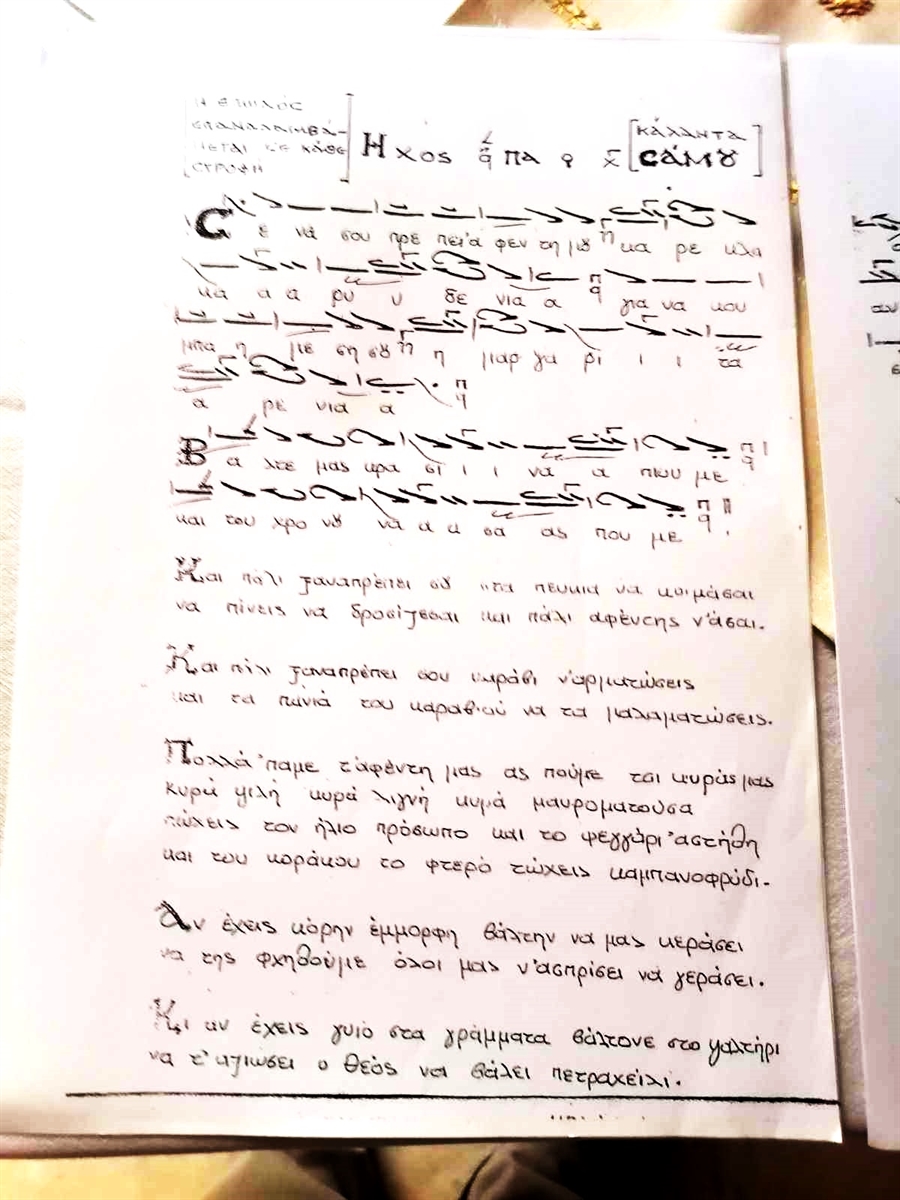 Η ΕΠΩΔΟΣ
ΕΠΑΝΑΛΑΜΒΑ-
ΝΕΤΑΙ ΣΕ ΚΑΘΕ
ΣΤΡΟΦΗ
Ηχος πα
ΚΑΛΑΝΤΑ
ΣΑΜΟΥ
Σε να σου πρε πει α φεν τη μȣ κα ρε κλα
κα α α ρυ υ δε νια α για να κου
μπα η με ση σȣ η μαρ γα ρι ι ι τα
α ρε νια α
Βα λτε μας κρα σι ι ι να α πιου με
και του χρο νȣ να α α σα ας που με
Και πάλι ξαναπρέπει σȣ στα πευκια να κοιμάσαι
να πίνεις να δροσίζεσαι και πάλι αφέντης ν'άσαι.
Και πάλι ξαναπρέπει σου καράβι ν'αρματώσεις
και τα πανιά του καραβιού να τα μαλαματώσεις.
Πολλά 'παμε τ'αφέντη μας ας πούμε τσι κυράς μας
κυρά ψιλή κυρά λιγνή κυρά μαυροματούσα
πώχεις τον ήλιο πρόσωπο και το φεγγάρι 'αστήθη
και του κοράκου το φτερό τώχεις καμπανοφρύδι.
Αν έχεις κόρην έμμορφη βάλτην να μας κεράσει
να της φχηθούμε όλοι μας ν'ασπρίσει νά γεράσει.
Κι αν έχεις γυιό στα γράμματα βάλτονε στο ψαλτήρι
να τ' αξιωσει ο Θεός να βάλει πετραχείλι.